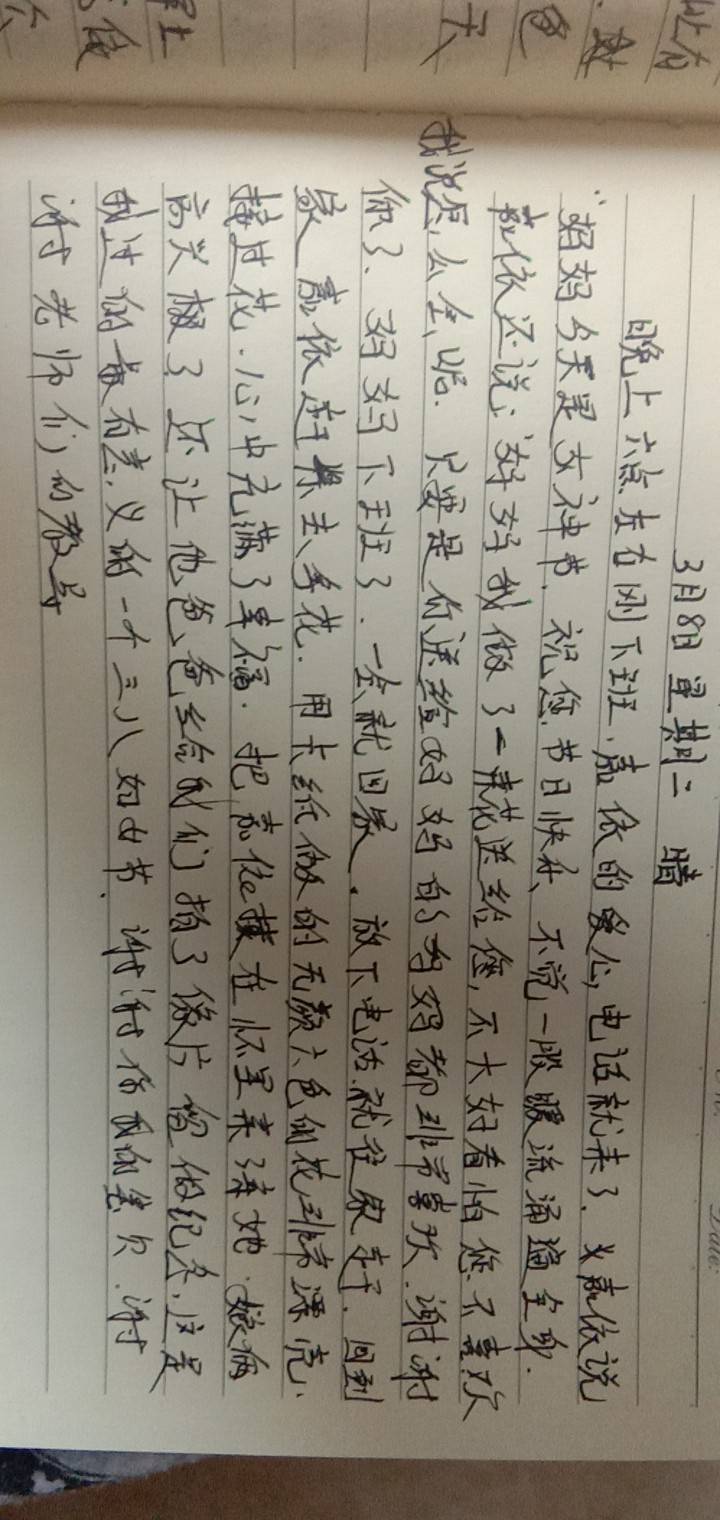 3月8日 星期二 晴
晚上六点左右刚下班.嘉依的爱心电话就来了.义嘉依说
"妈妈今天是女神节.祝您.节日快乐、不觉一股暖流涌遍全身.
嘉依还说:好妈妈我做了一束花送给您,不大好看怕您不喜欢
我说怎么会呢.只要是你送给妈妈的妈妈都非常喜欢.谢谢
你了、妈妈下班了.一会就回家.放下电话.就往家走了.回到
家 嘉依赶紧去、拿花.用卡纸做的无颜六色的花非常漂亮、
接过花.心中充满了幸福.把嘉依搂在怀里亲了亲她.娘俩
高兴极了 还让他爸爸给我们拍了像片 留做纪念.这是
我过的最有意义的一个三八妇女节.谢谢你我的宝贝.谢
谢老师们的教导